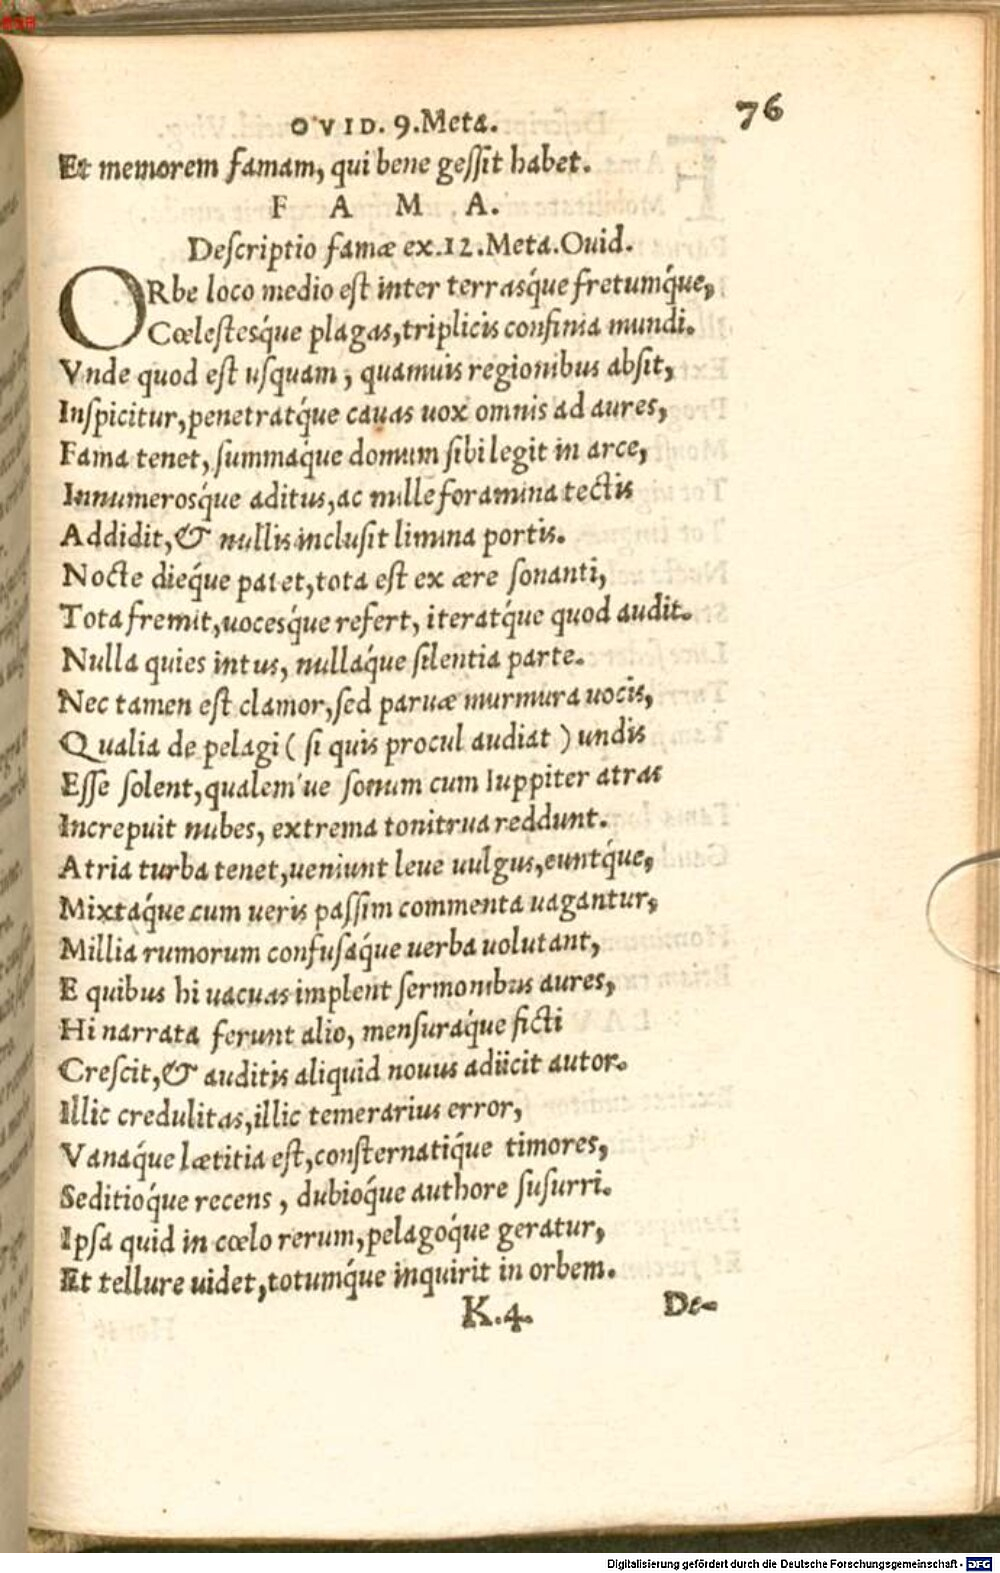 76
OVID. 9. Meta.
Et memorem famam, qui bene gessit habet.
F A M A.
Descriptio famæ ex. 12. Meta. Ouid.
ORbe loco medio est inter terrasq́ue fretumq́ue,
Cœlestesq́ue plagas, triplicis confinia mundi.
Vnde quod est usquam, quamuis regionibus absit,
Inspicitur, penetratq́ue cauas uox omnis ad aures,
Fama tenet, summaq́ue domum sibi legit in arce,
Innumerosq́ue aditus, ac mille foramina tectis
Addidit, & nullis inclusit limina portis.
Nocte dieq́ue patet, tota est ex ære sonanti,
Tota fremit, uocesq́ue refert, iteratq́ue quod audit.
Nulla quies intus, nullaq́ue silentia parte.
Nec tamen est clamor, sed paruæ murmura uocis,
Qualia de pelagi ( si quis procul audiat ) undis
Esse solent, qualem'ue sonum cum Iuppiter atras
Increpuit nubes, extrema tonitrua reddunt.
Atria turba tenet, ueniunt leue uulgus, euntq́ue,
Mixtaq́ue cum ueris passim commenta uagantur,
Millia rumorum confusaq́ue uerba uolutant,
E quibus hi uacuas implent sermonibus aures,
Hi narrata ferunt alio, mensuraq́ue ficti
Crescit, & auditis aliquid nouus adiicit autor.
Illic credulitas, illic temerarius error,
Vanaq́ue lætitia est, consternatiq́ue timores,
Seditioq́ue recens, dubioq́ue authore susurri.
Ipsa quid in cœlo rerum, pelagoq́ue geratur,
Et tellure uidet, totumq́ue inquirit in orbem.
K. 4. De-
Digitalisierung gefördert durch die Deutsche Forschungsgemeinschaft - DFG